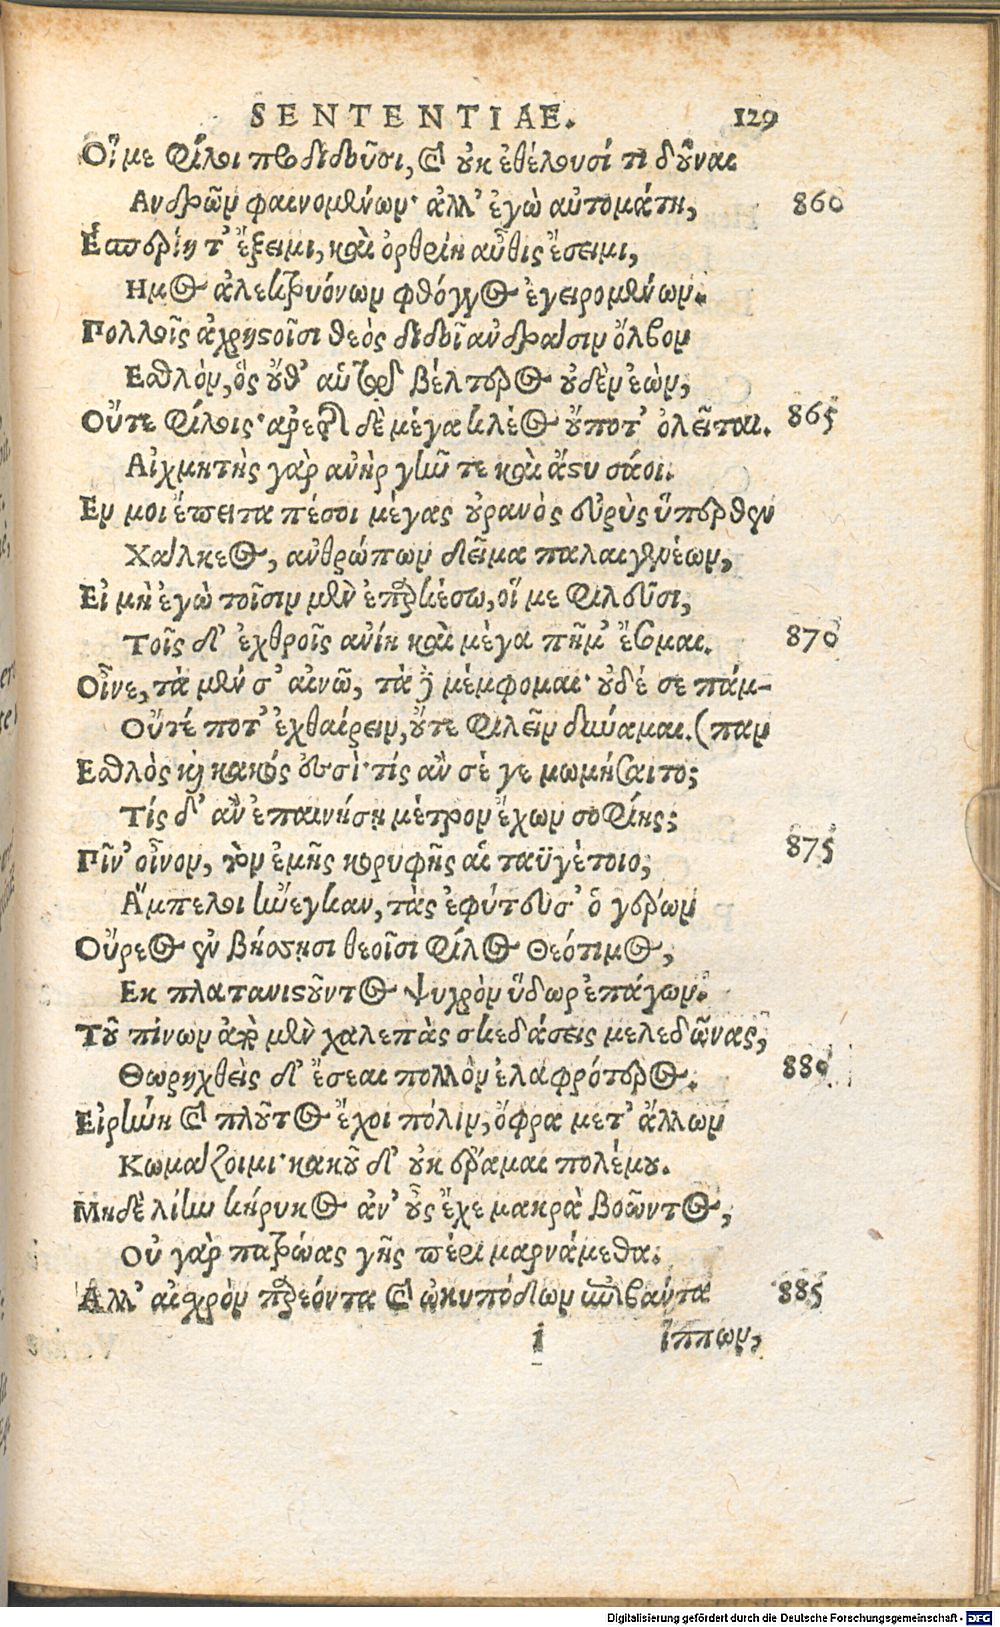 SENTENTIAE. 129
Οἵ με φίλοι προδιδοῦσι, καὶ οὐκ ἐθέλουσί τι δοῦναι
Ἀνδρῶν φαινομένων· ἀλλ' ἐγὼ αὐτομάτη, 860
Ἑσπερίη τ' ἔξειμι, καὶ ὀρθρίη αὖθις ἔσειμι,
Ημος ἀλεκτρυόνων φθόγγος ἐγειρομένων.
Πολλοῖς ἀχρήστοισι θεὸς διδοῖ ἀνδράσιν ὄλβον
Εσθλὸν, ὃς οὔθ' αὑτῷ βέλτερος οὐδὲν ἐὼν,
Οὔτε φίλοις· ἀρετῆς δὲ μέγα κλέος οὔποτ' ὀλεῖται. 865
Αἰχμητὴς γὰρ ἀνὴρ γῆν τε καὶ ἄστυ σάοι.
Εν μοι ἔπειτα πέσοι μέγας οὐρανὸς εὐρὺς ὕπερθεν
Χάλκεος, ἀνθρώπων δεῖμα παλαιγενέων,
Εἰ μὴ ἐγὼ τοῖσιν μὲν ἐπαρκέσω, οἵ με φιλεῦσι,
Τοῖς δ' ἐχθροῖς ἀνίη καὶ μέγα πῆμ' ἔσομαι. 870
Οἶνε, τὰ μέν σ' αἰνῶ, τὰ δὲ μέμφομαι· οὐδέ σε πάμ-
Οὔτέ ποτ' ἐχθαίρειν, οὔτε φιλεῖν δύναμαι. (παν
Εσθλὸς καὶ κακός ἐσσί· τίς ἄν σέ γε μωμήσαιτο;
Τίς δ' ἂν ἐπαινήσῃ μέτρον ἔχων σοφίης;
Πῖν' οἶνον, τὸν ἐμῆς κορυφῆς αἱ ταϋγέτοιο, 875
Ἄμπελοι ἤνεγκαν, τὰς ἐφύτευσ' ὁ γέρων
Οὔρεος ἐν βήσσῃσι θεοῖσι φίλος Θεότιμος,
Εκ πλατανιστοῦντος ψυχρὸν ὕδωρ ἐπάγων.
Τοῦ πίνων ἀπὸ μὲν χαλεπὰς σκεδάσεις μελεδῶνας,
Θωρηχθεὶς δ' ἔσεαι πολλὸν ἐλαφρότερος. 880
Εἰρήνη καὶ πλοῦτος ἔχοι πόλιν, ὄφρα μετ' ἄλλων
Κωμάζοιμι· κακοῦ δ' οὐκ ἔραμαι πολέμου.
Μηδὲ λίην κήρυκος ἀν' οὖς ἔχε μακρὰ βοῶντος,
Οὐ γὰρ πατρώας γῆς πέρι μαρνάμεθα.
Αλλ' αἰσχρὸν παρεόντα καὶ ὠκυπόδων ἐπιβάντα 885
i ἵππων,
Digitalisierung gefördert durch die Deutsche Forschungsgemeinschaft - DFG